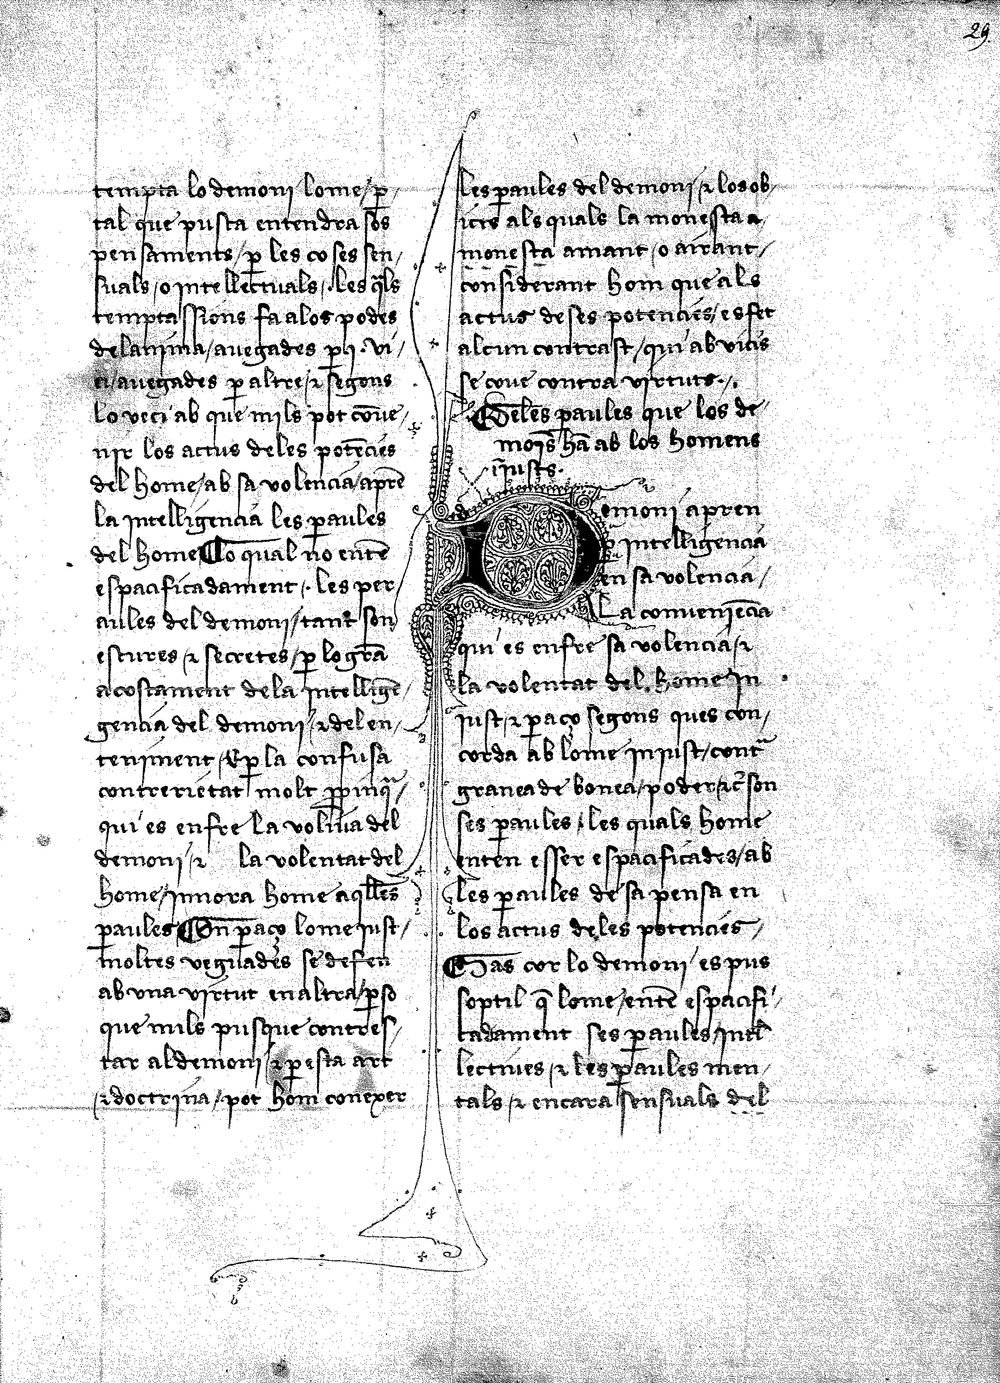 29
tempta lo demoni lome / ꝑ
tal que pusca entendra sos
pensaments / ꝑ les coses sen,
suals / o intellectuals / les q̄ls
temptassions fa a los podes
de lanima / auegades ꝑ .i. vi,
ci / auegades ꝑ altre / ⁊ segons
lo veci ab que mils pot cōue,
nir los actus de les potēcies
del home / ab sa volencia / aprē
la intelligencia les ꝑaules
del home Lo qual no entē
espacificadament / les per
aules del demoni / tant son
escures / ⁊ secretes / ꝑ lo gran
acostament de la intelligē,
gencia del demoni / ⁊ del en,
teniment / E ꝑ la confusa
contrerietat molt ꝓpinqª
qui es enfre la volēcia del
demoni / ⁊ la volentat del
home / innora home aq̄lles
ꝑaules En ꝑaço lome just /
moltes veguades se defen
ab vna virtut en altra / ꝑ so
que mils pusque contres,
tar al demoni / ⁊ ꝑ esta art
⁊ doctrina / pot hom conexer
les ꝑaules del demoni / ⁊ los ob,
icts als quals la monesta a,
monesta amant / o airant /
considerant hom que als
actus de ses potencies / es fet
alcun contrast / qui ab vicis
se coue contra virtuts.
De les ꝑaules que los de
monis hā ab los homens
īiusts.
Demoni apren
ꝑ intelligencia
en sa volencia /
La conueniēcia
qui es enfre sa volencia / ⁊
la volentat del home in
just / ⁊ ꝑ aço segons ques con,
corda ab lome injust / contª
granea de bonea / poder / ⁊c̄ son
ses ꝑaules / les quals home
enten esser espacificades / ab
les ꝑaules de sa pensa en
los actus de les potencies /
Mas cor lo demoni / es pus
soptil q̄ lome / entē espacifi,
cadament ses ꝑaules / intel
lectiues / ⁊ les ꝑaules men,
tals / ⁊ encara sensuals del